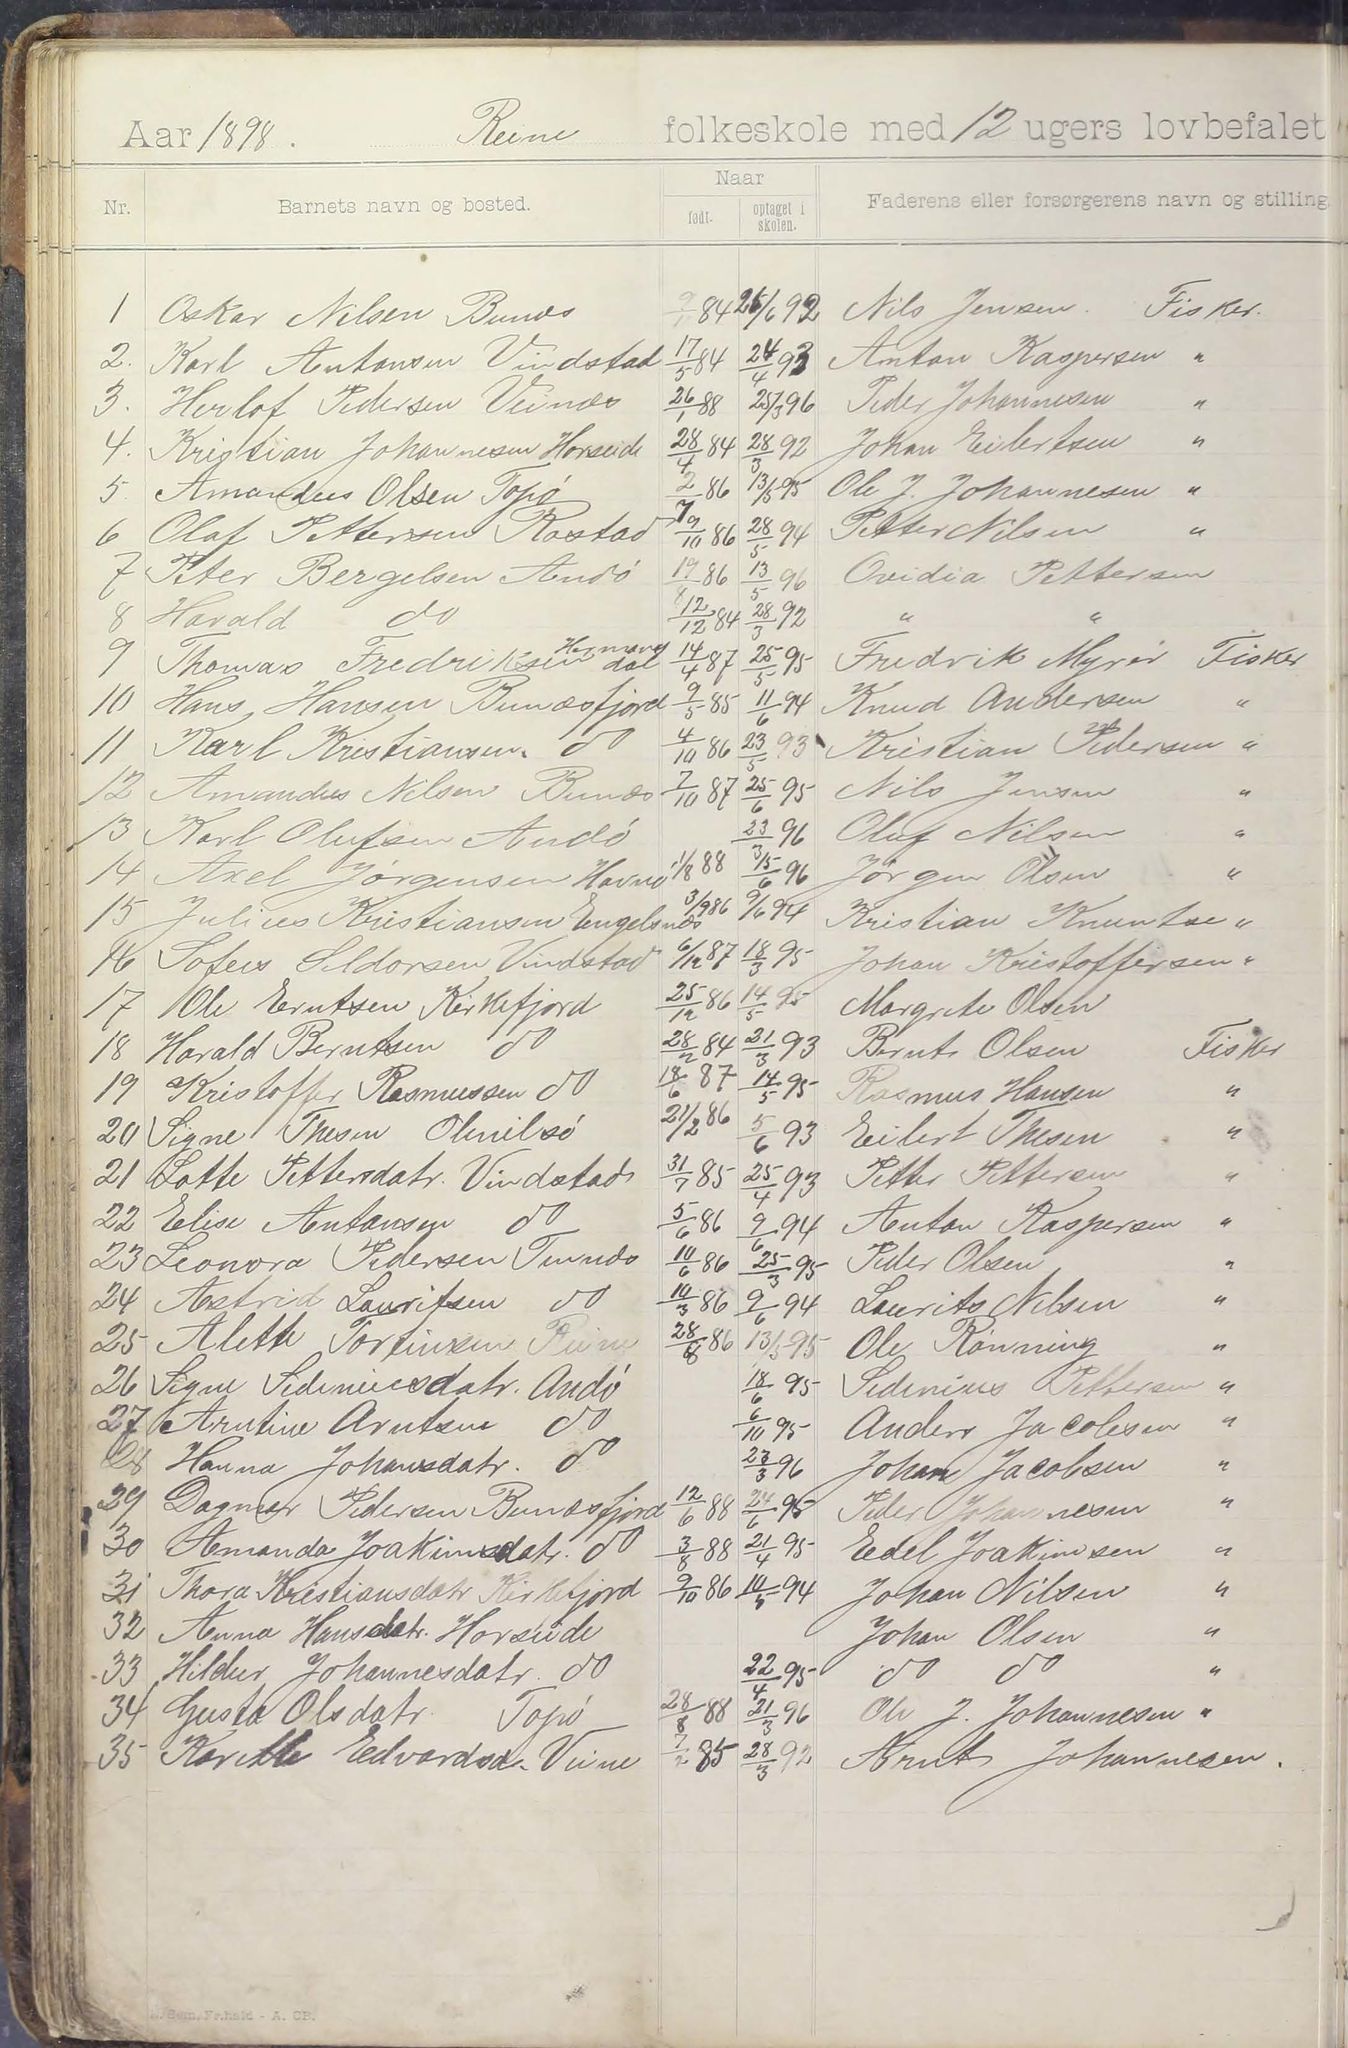 Aar 1898. Reine folkeskole med 12 ugers lovbefalet
Nr. Barnets navn og bosted. Naar født. optaget i skolen. Faderens eller forsørgerens navn og stilling
1 Oskar Nilsen Bunæs 84 25/6 92 Nils Jensen. Fisker.
2. Karl Antonsen Vindstad 17/5 84 24/4 93 Anton Kaspersen "
3. Herlof Pedersen Veinæs 26/1 88 25/3 96 Peder Johannesen "
4. Kristian Johannesen Horseide 28/4 84 28/3 92 Johan Eilertsen "
5. Amandus Olsen Topö 2/7 86 13/5 95 Ole J. Johannesen "
6 Olaf Pettersen Rostad 9/10 86 28/5 94 Petter Nilsen "
7 Peter Bergelsen Andö 19/8 86 13/5 96 Ovidia Pettersen
8 Harald do 12/12 84 28/3 92 " "
9 Thomas Fredriksen Hermansdal 14/4 87 25/5 95 Fredrik Myrør Fisker
10 Hans Hansen Bunæsfjord 9/5 85 11/6 94 Knud Andersen "
11 Karl Kristiansen. do 4/10 86 23/5 93 Kristian Pedersen "
12 Amandus Nilsen Bunæs 7/10 87 25/6 95 Nils Jensen "
13 Karl Olufsen Andö 23/3 96 Oluf Nilsen "
14 Axel Jörgensen Havnö 1/8 88 15/6 96 Jörgen Olsen "
15 Julius Kristiansen Engelsnæs 3/9 86 9/6 94 Kristian Knuntse "
16 Sofus Sildorsen Vindstad 6/12 87 18/3 95 Johan Kristoffersen "
17 Ole Erntsen Kirkefjord 25/12 86 14/5 95 Margrete Olsen
18 Harald Berntsen do 28/2 84 21/3 93 Bernt Olsen Fisker
19 Kristoffer Rasmussen do 18/6 87 14/5 95 Rasmus Hansen "
20 Signe Thesen Olenilsö 21/2 86 5/6 93 Eilert Thesen "
21 Lotte Pettersdatr. Vindstad 31/7 85 25/4 93 Petter Pettersen "
22 Elise Antonsen do 5/6 86 9/6 94 Anton Kaspersen "
23 Leonora Pedersen Tennæs 10/6 86 25/3 95 Peder Olsen "
24 Astrid Lauritsen do 10/3 86 9/6 94 Laurits Nilsen "
25 Alette Torfinsen Reine 28/8 86 13/5 95 Ole Rönning "
26 Signe Sedeniusdatr. Andö 18/6 95 Sedenius Pettersen "
27 Arntine Arntsen do 6/10 95 Anders Jacobsen "
28 Hanna Johansdatr. do 23/3 96 Johan Jacobsen "
29 Dagmar Pedersen Bunæsfjord 12/6 88 24/6 95 Peder Johannesen "
30 Amanda Joakimsdatr. do 3/8 88 21/4 95 Edel Joakimsen "
31 Thora Kristiansdatr Kirkefjord 9/10 86 10/5 94 Johan Nilsen "
32 Anna Hansdatr. Horseide Johan Olsen "
33 Hildur Johannesdatr. do 22/4 95 do do "
34 Gusta Olsdatr. Topö 28/8 88 21/3 96 Ole J. Johannesen "
35 Edvardsd. Veine 7/2 85 28/3 92 Arnt Johannesen.
Fr.hald - A. CB.